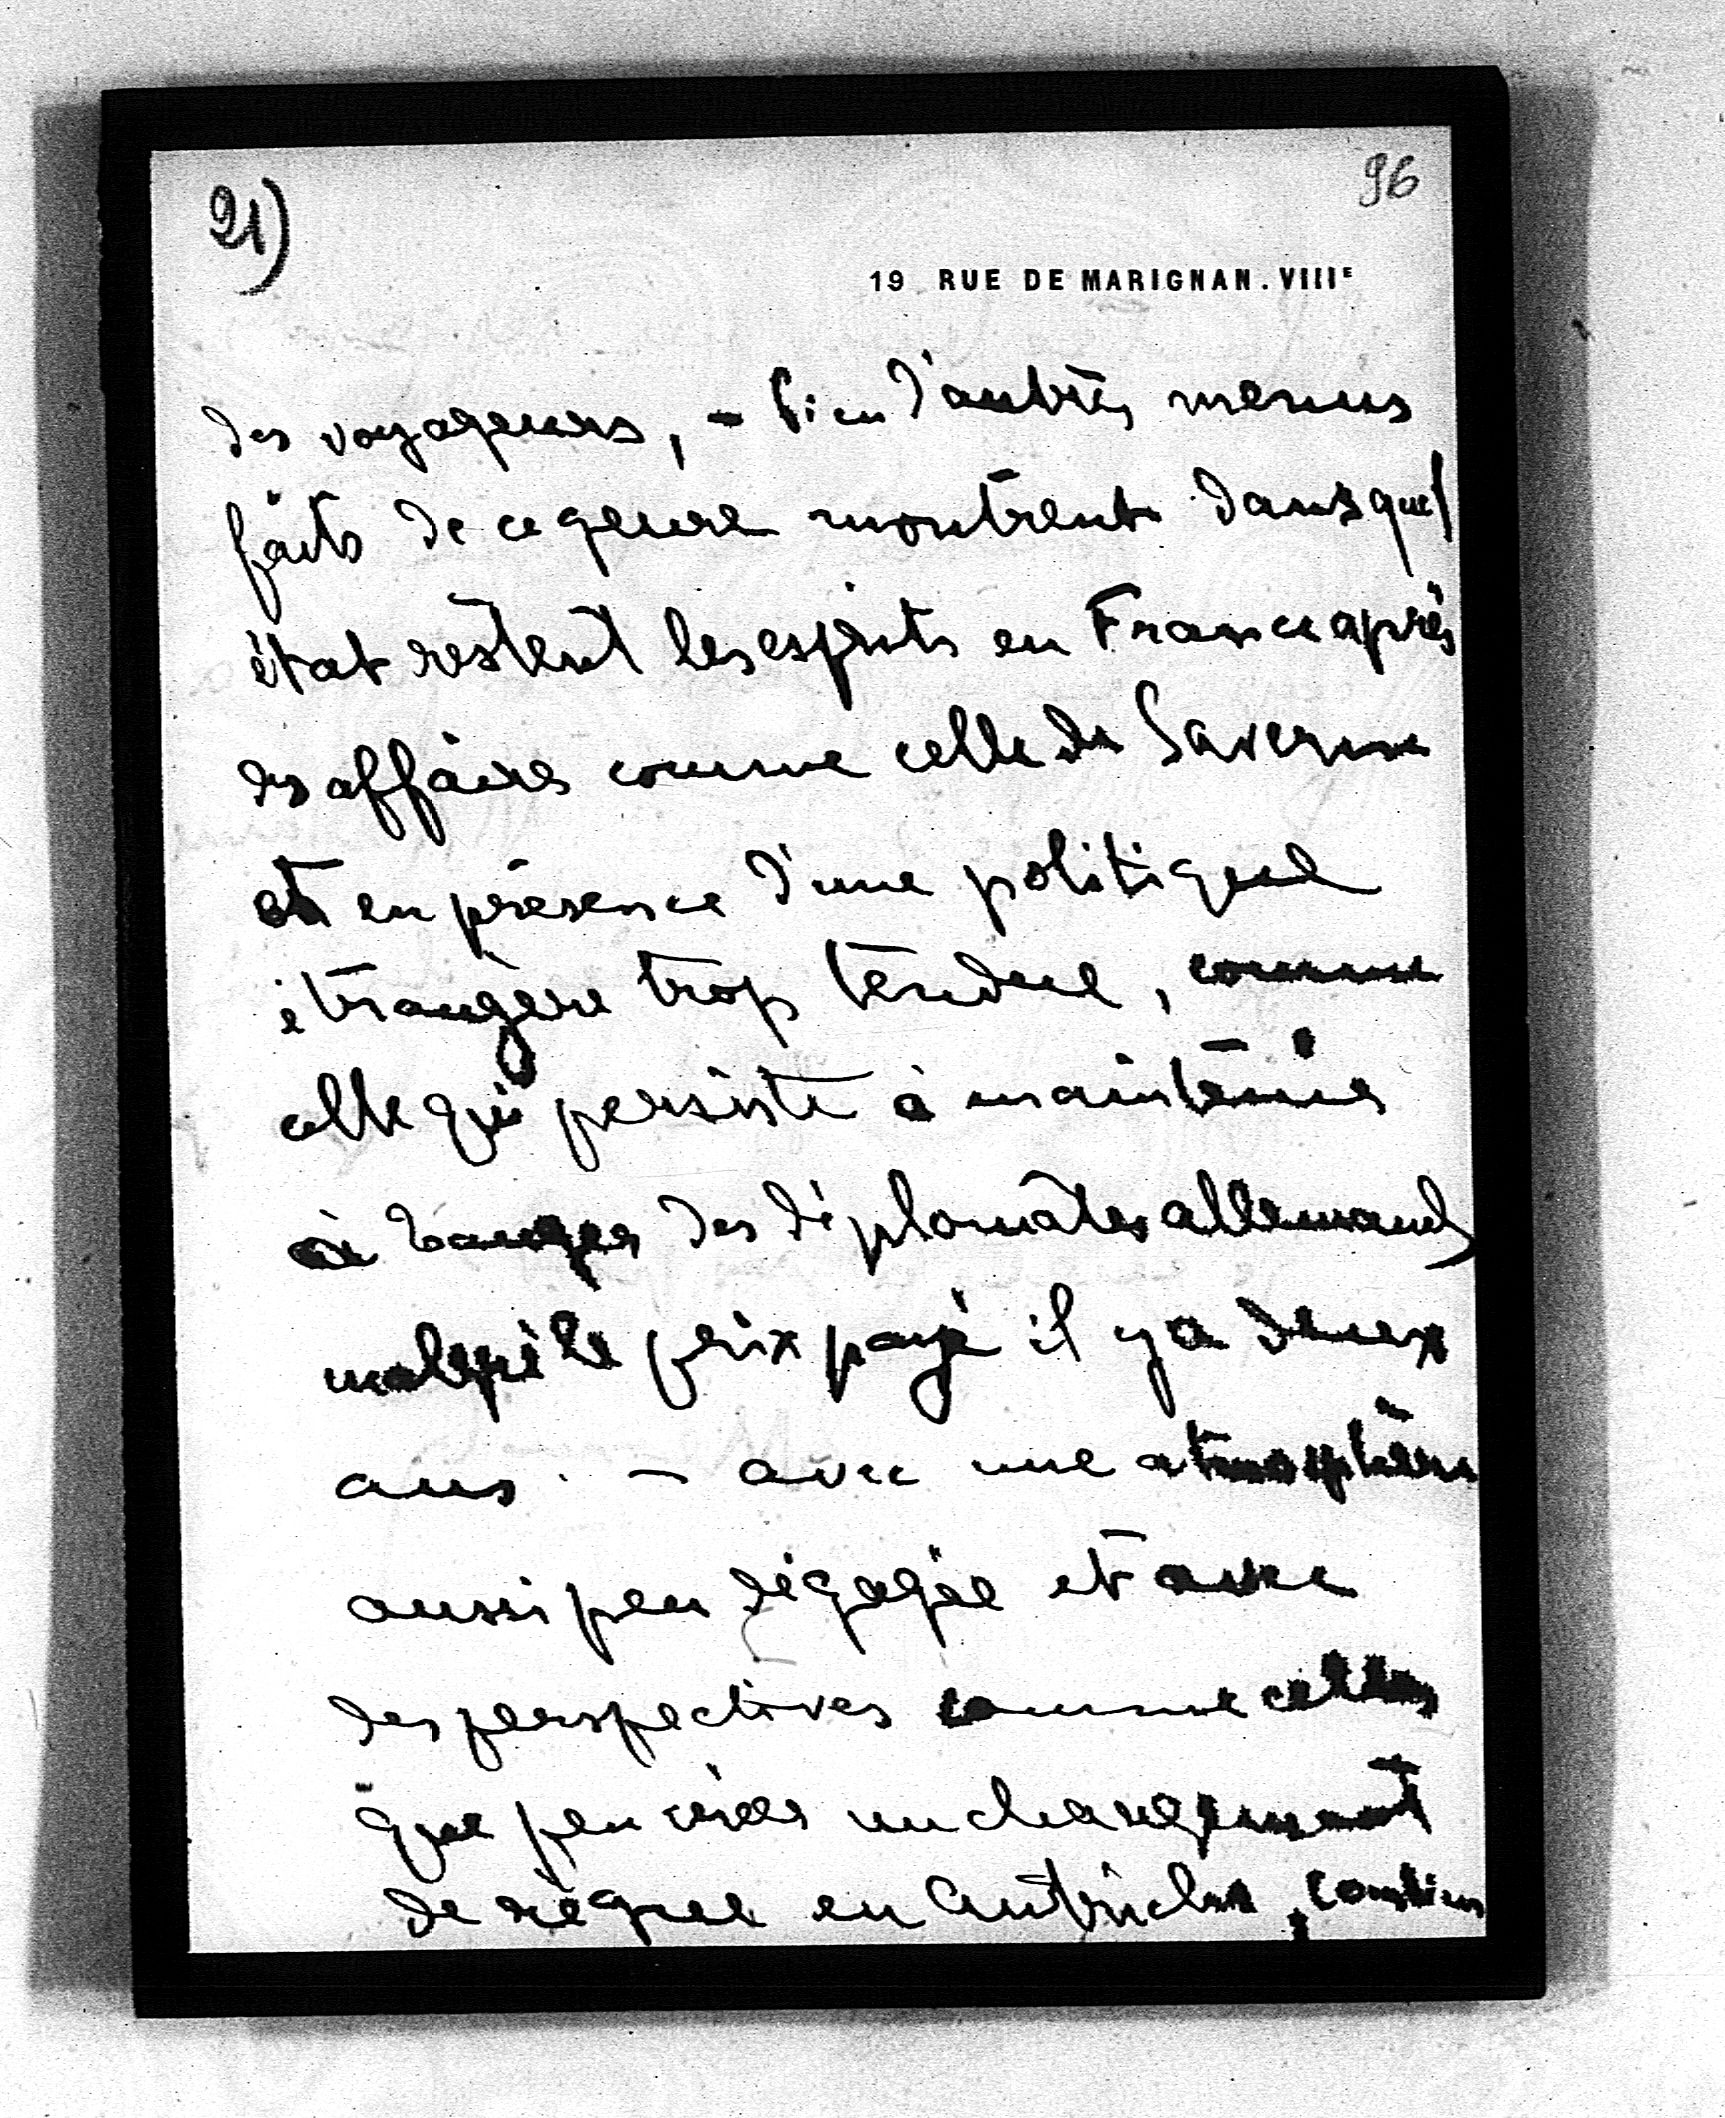 21)
96
19 RUE DE MARIGNAN. VIIIE
des voyageurs, - bien d'autres menus
faits de ce genre montrent dans quel
état restent les esprits en France après
des affaires comme celle de Saverne
et en présence d'une politique
étrangère trop tendue, comme
celle qui persiste à maintenir
à Tanger des diplomates allemands
malgré le prix payé il y a deux
ans. - avec une atmosphère
aussi peu dégagée et avec
des perspectives comme celles
que peut créer un changement
de règne en Autriche, combien